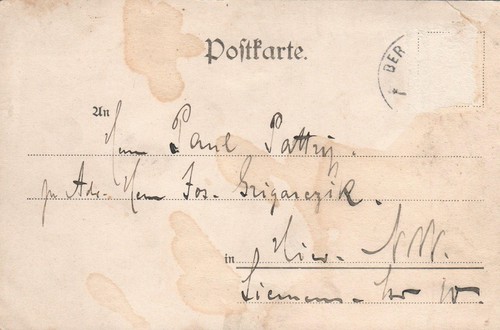 Postkarte.
BER
An Herrn Paul Pattry.
pr Adr. Herrn Jos. Grigarczik.
in Hier. N.W.
Siemens-